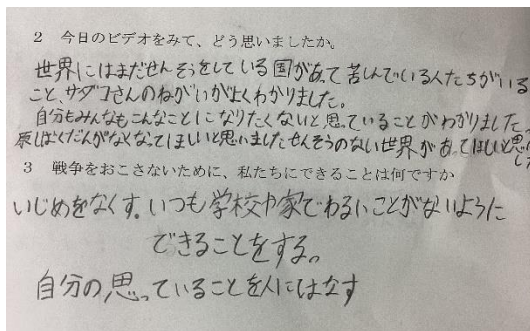 2 今日のビデオをみて、どう思いましたか。
世界にはまだせんそうをしている国があって苦しんでいる人たちがいる
こと、サダコさんのねがいがよくわかりました。
自分もみんなもこんなことになりたくないと思っていることがわかりました。
原しばくだんがなくなってほしいと思いましたせんそうのない世界があってほしいと思いした
3 戦争をおこさないために、私たちにできることは何ですか
いじめをなくす。いつも学校や家でわるいことがないように
できることをする。
自分の思っていることを人にはなす